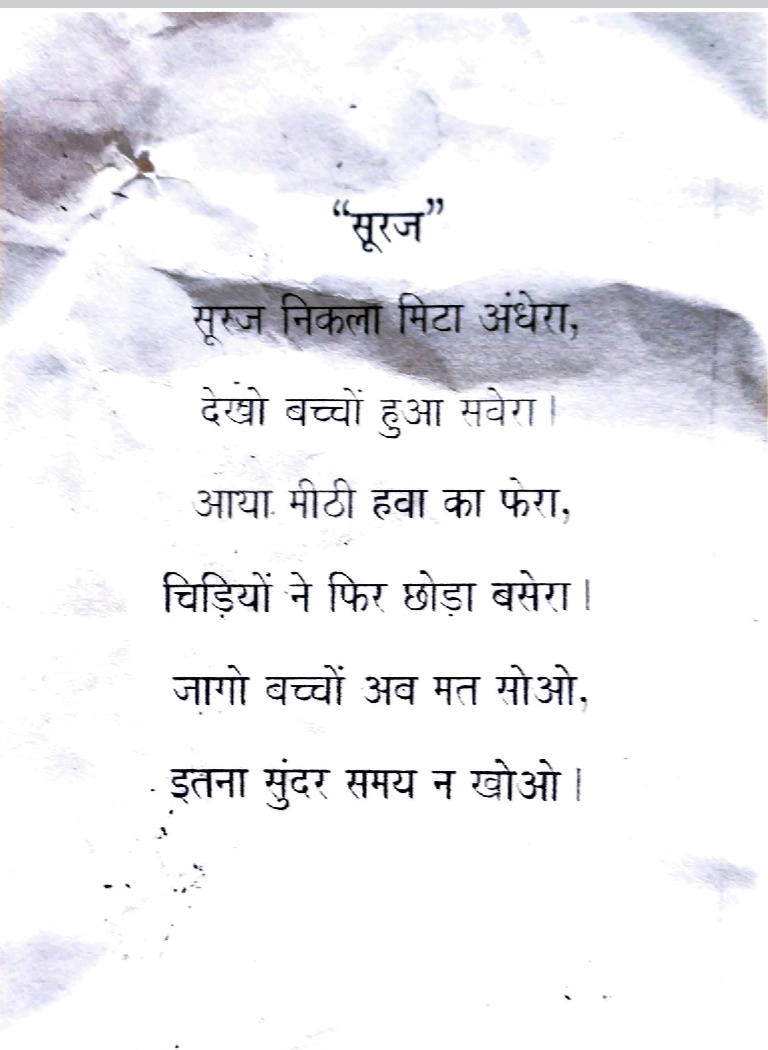 “सूरज”
सूरज निकला मिटा अंधेरा,
देखो बच्चों हुआ सवेरा।
आया मीठी हवा का फेरा,
चिड़ियों ने फिर छोड़ा बसेरा।
जागो बच्चों अब मत सोओ,
इतना सुंदर समय न खोओ।